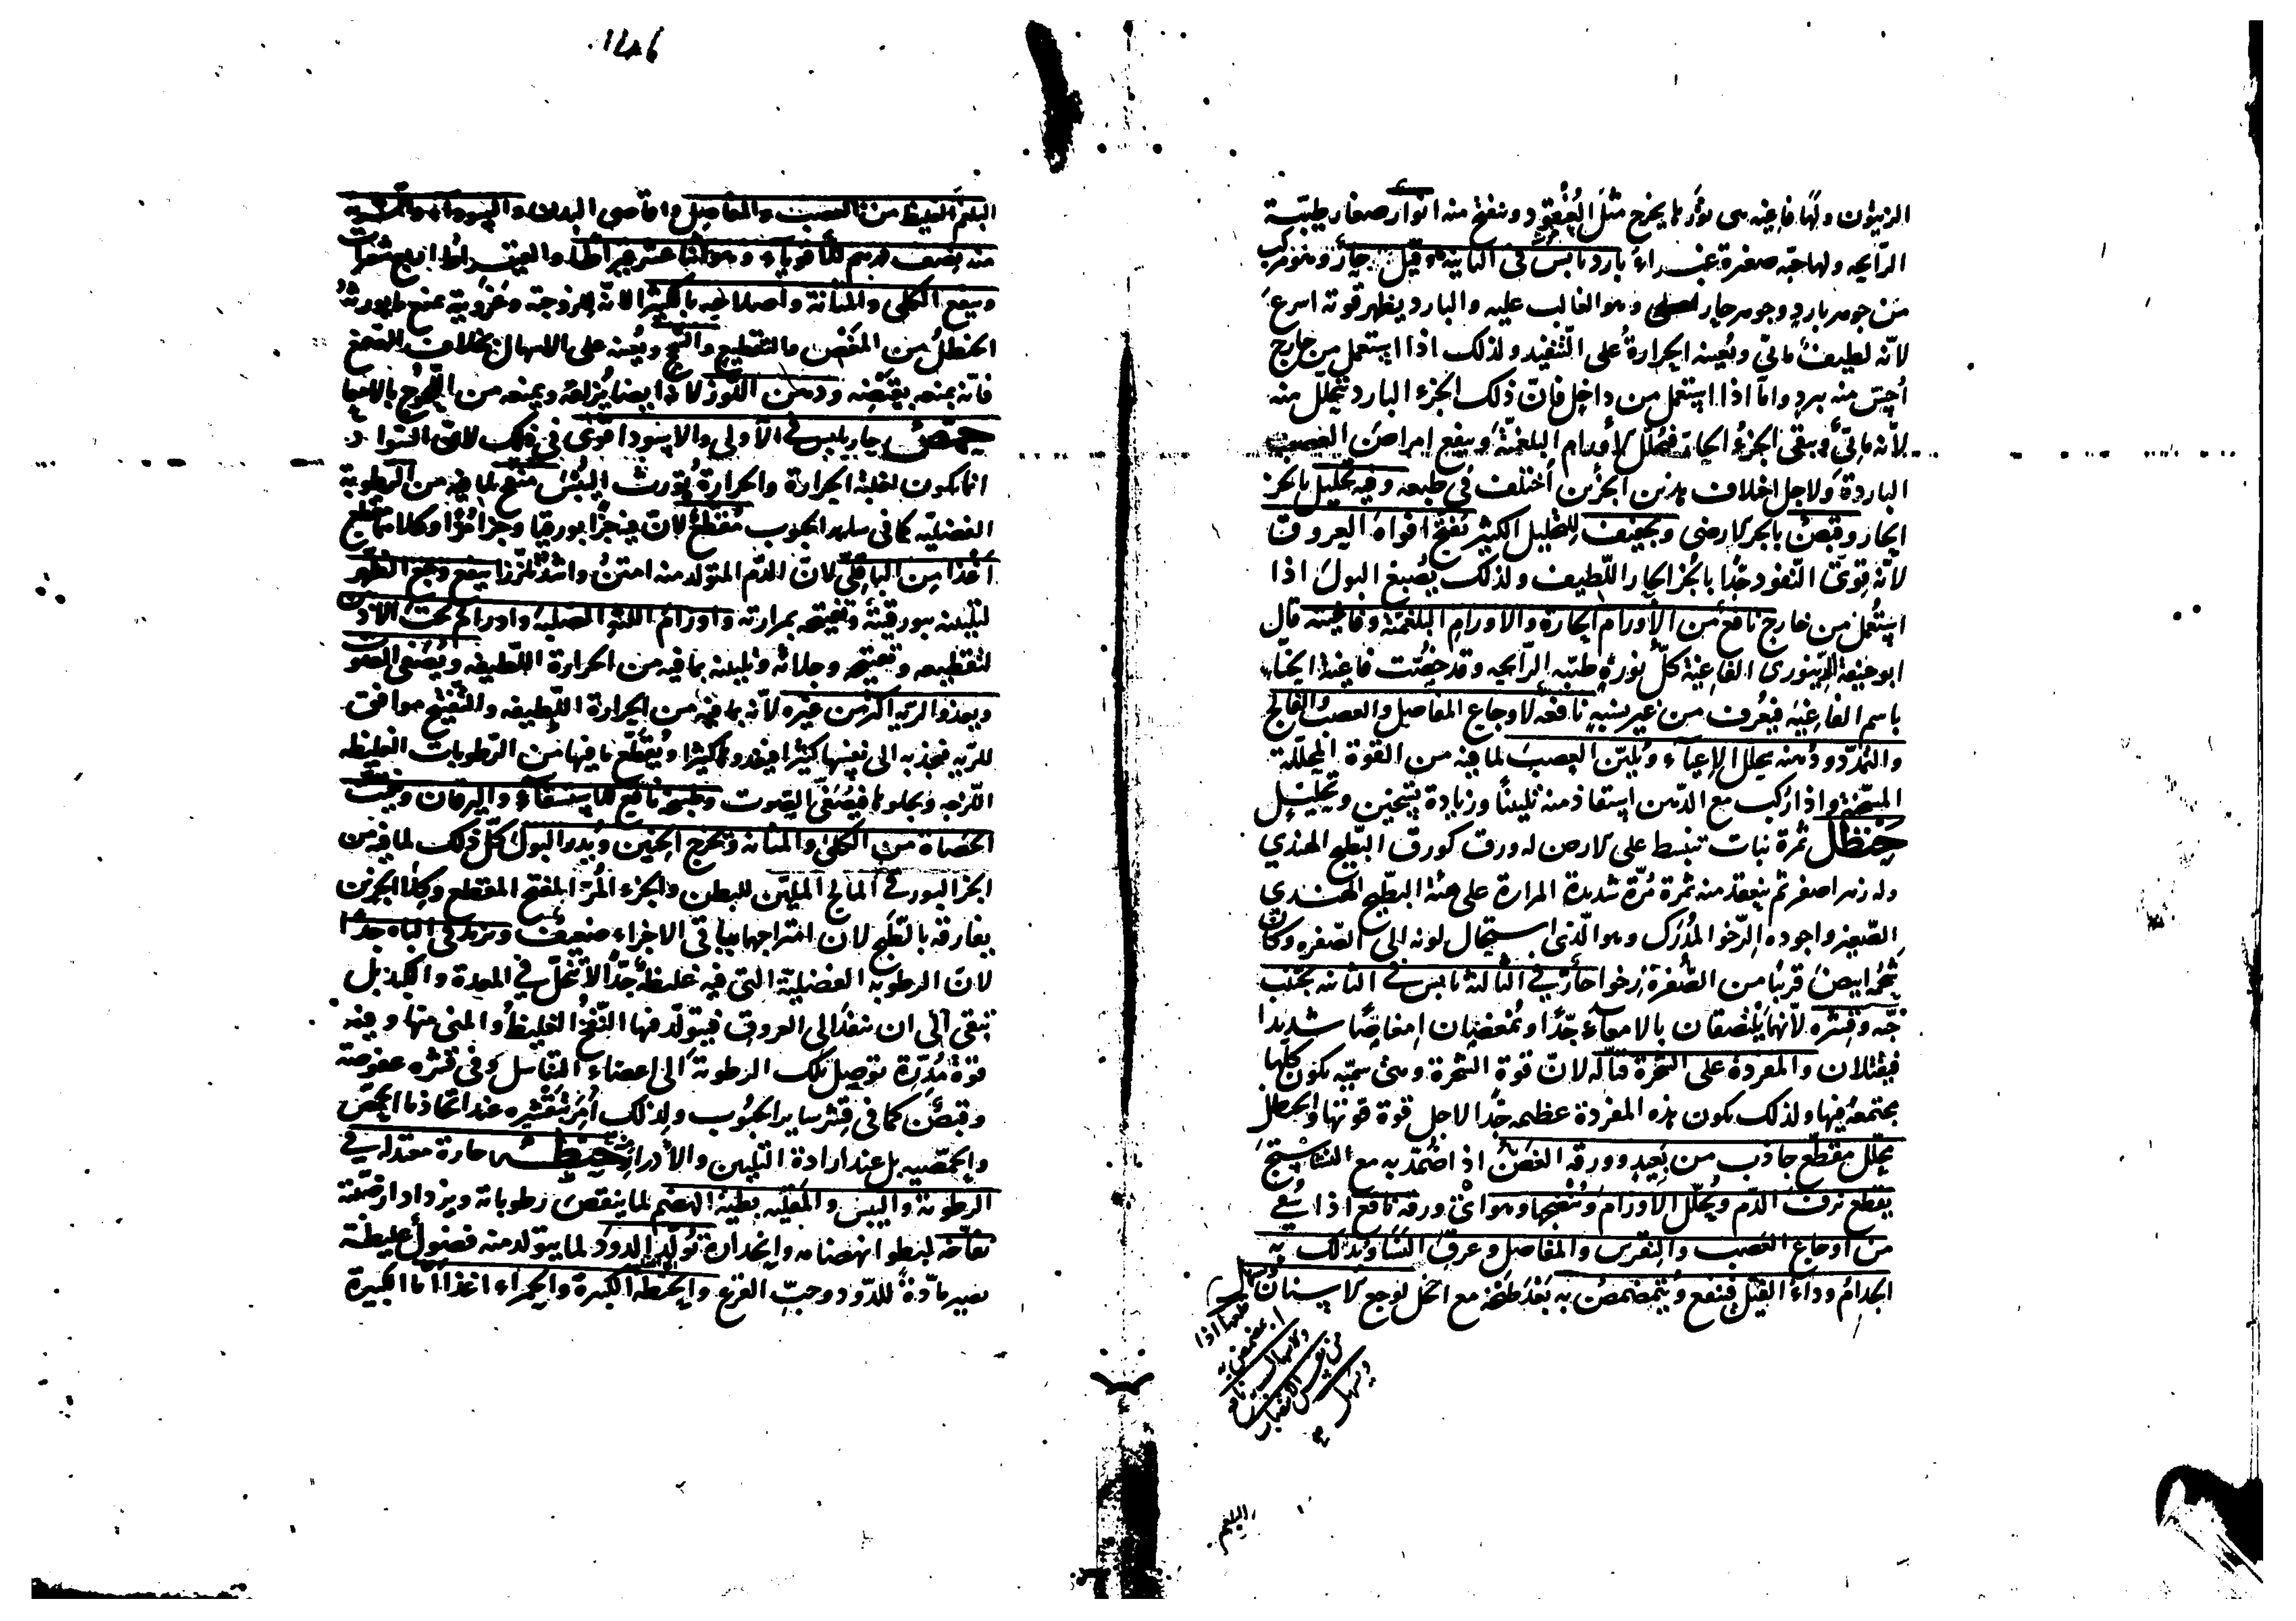 الزيتون ولها فاغية هى نورها يخرج مثل العنقود وينفتح منه انوار صغار طيبة
الرايحه ولها حبه صغيرة غبراء بارد يابس فى الثانية وقيل حار وهو مركب
من جوهر بارد وجوهر حار وهو الغالب عليه والبارد يظهر قوته اسرع
لانه لطيف مائى وتعينه الحرارة على التنفيد ولذلك اذا استعمل من خارج
أحس منه ببرد واما اذا استعمل من داخل فان ذلك الجزء البارد يتحلل منه
لانه مائى ويبقى الجزء الحار فيحلل الاورام البلغمية وينفع امراض العصب
الباردة ولاجل اختلاف هذين الجزئين اختلف فى طبعه وفيه تحليل بالجز
الحار وقبض بالجزء الارضى وتجفيف للتحليل الكثير يفتح افواه العروق
لانه قوى النفود جدا بالجز الحار اللطيف ولذلك يصبغ البول اذا
استعمل من خارج نافع من الاورام الحارة والاورام البلغمية وفاغيته قال
ابو حنيفة الدينورى الفاغية كل نورة طيبة الرايحه وقد خصت فاغية الحناء
باسم الفاغيه فيعرف من غير نسبة نافعه لاوجاع المفاصل والعصب والفالج
والتمدد ودهنه يحلل الاعياء ويلين العصب لما فيه من القوة المحللة
المسخنة واذا ركب مع الدهن استفاد منه تليينا وزيادة تسخين وتحليل
حنظل ثمرة نبات تنبسط على الارض له ورق كورق البطيخ الهندي
وله زهر اصفر ثم ينعقد منه ثمرة مرة شديدة المرارة على هيئة البطيخ الهندى
الصغير واجوده الرخو المدرك وهو الذى استحال لونه الى الصفره وكان
شحمه ابيض قريبا من الصفرة رخوا حار فى الثالثة يابس فى الثانيه يجتنب
حبه وقشره لانهما يلتصقان بالامعاء جدا ويمغصان امغاصا شديدا
فيقتلان والمفردة على الشجرة قتاله لان قوة الشجرة وهى سميه يكون كلها
مجتمعه فيها ولذلك يكون هذه المفردة عظيمه جدا لاجل قوة قوتها والحنظل
يحلل مقطع جاذب من بعيد وورقه الغض اذا ضمد به مع النشاستج
يقطع نزف الدم ويحلل الاورام وينضجها وهو اى ورقه نافع اذا
من اوجاع العصب والنقرس والمفاصل وعرق النسا ويدلك به
الجدام وداء الفيل فينفع ويتمضمض به بعد طبخه مع الخل لوجع الاسنان
البلغم
البلغم الغليظ من العصب والمفاصل واقاصى البدن والسوداء والشربه
منه نصف درهم للاقوياء وهو اثنا عشر قيراطا والقيراط اربع شعيرات
وينفع الكلى والمثانة واصلاحه بالكثيرا لانه للزوجته وغرويته يمنع ما يورثه
الحنظل من المغص والتقطيع والسحج ويعينه على الاسهال بخلاف الصمغ
فانه يمنعه بقبضه ودهن اللوز لانه ايضا يزلقه ويمنعه من اللحوج بالامعا
حمص حار يابس فى الاولى والاسود اقوى فى ذلك لان السواد
انما يكون لغلبة الحرارة والحرارة تورث اليبس منفخ لما فيه من الرطوبة
الفضليه كما فى ساير الحبوب مقطع لان فيه جزا بورقيا وجزا مرا وكلاهما مقطع
اغذا من الباقلى لان الدم المتولد منه امتن واشد تلززا ينفع وجع الظهر
لتليينه ببورقيته وتفتيحه بمرارته واورام اللثه الصلبه واورام تحت الاذن
لتقطيعه وتفتيحه وجلائه وتليينه بما فيه من الحرارة اللطيفه ويصفى الصوت
ويغذو الريه اكثر من غيره لانه بما فيه من الحرارة اللطيفه والتفتيح موافق
للريه فتجذبه الى نفسها كثيرا فيغدوها كثيرا ويقطع ما فيها من الرطوبات الغليظه
اللزجه ويجلوها فيصفى الصوت وطبيخه نافع للاستسقاء واليرقان ويفتت
الحصاة من الكلى والمثانه ويخرج الجنين ويدر البول كل ذلك لما فيه من
الجز البورقى المالح الملين للبطن والجزء المر المفتح المقطع وكلا الجزئين
يفارقه بالطبخ لان امتزاجهما بباقى الاجزاء ضعيف ويزيد فى الباه جدا
لان الرطوبه الفضلية التى فيه غليظة جدا لا تتحلل فى المعدة والكبد بل
تبقى الى ان تنفد الى العروق فيتولد فيها النفخ الغليظ والمنى منها وفيه
قوة مدرة توصل تلك الرطوبة الى اعضاء التناسل وفى قشره عفوصة
وقبض كما فى قشر ساير الحبوب ولذلك أمر بتقشيره عند اتخاذ ماء الحمص
والحمصيه بل عند ارادة التليين والأدرار حنطة حارة معتدله فى
الرطوبة واليبس والمقليه بطية الهضم لما ينقص رطوباته ويزداد ارضيته
نفاخه لبطو انهضامه وانحداره تولد الدود لما يتولد منه فضول غليظة
تصير مادة للدود وحب القرع والحنطه الكبيرة والحمراء اغذا اما الكبيرة